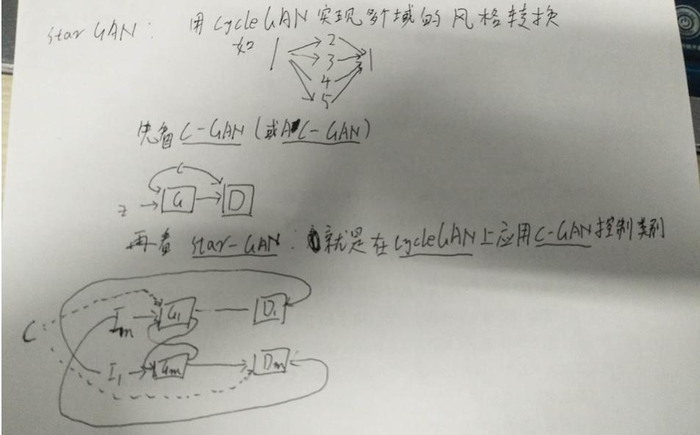 star GAN: 用CycleGAN实现多个域的风格转换
如 1 2 3 4 5 1
先看C-GAN(或AC-GAN)
C
z G D
再看star-GAN: 就是在CycleGAN上应用C-GAN控制类别
Im G1 D1
C
I1 Gm Dm